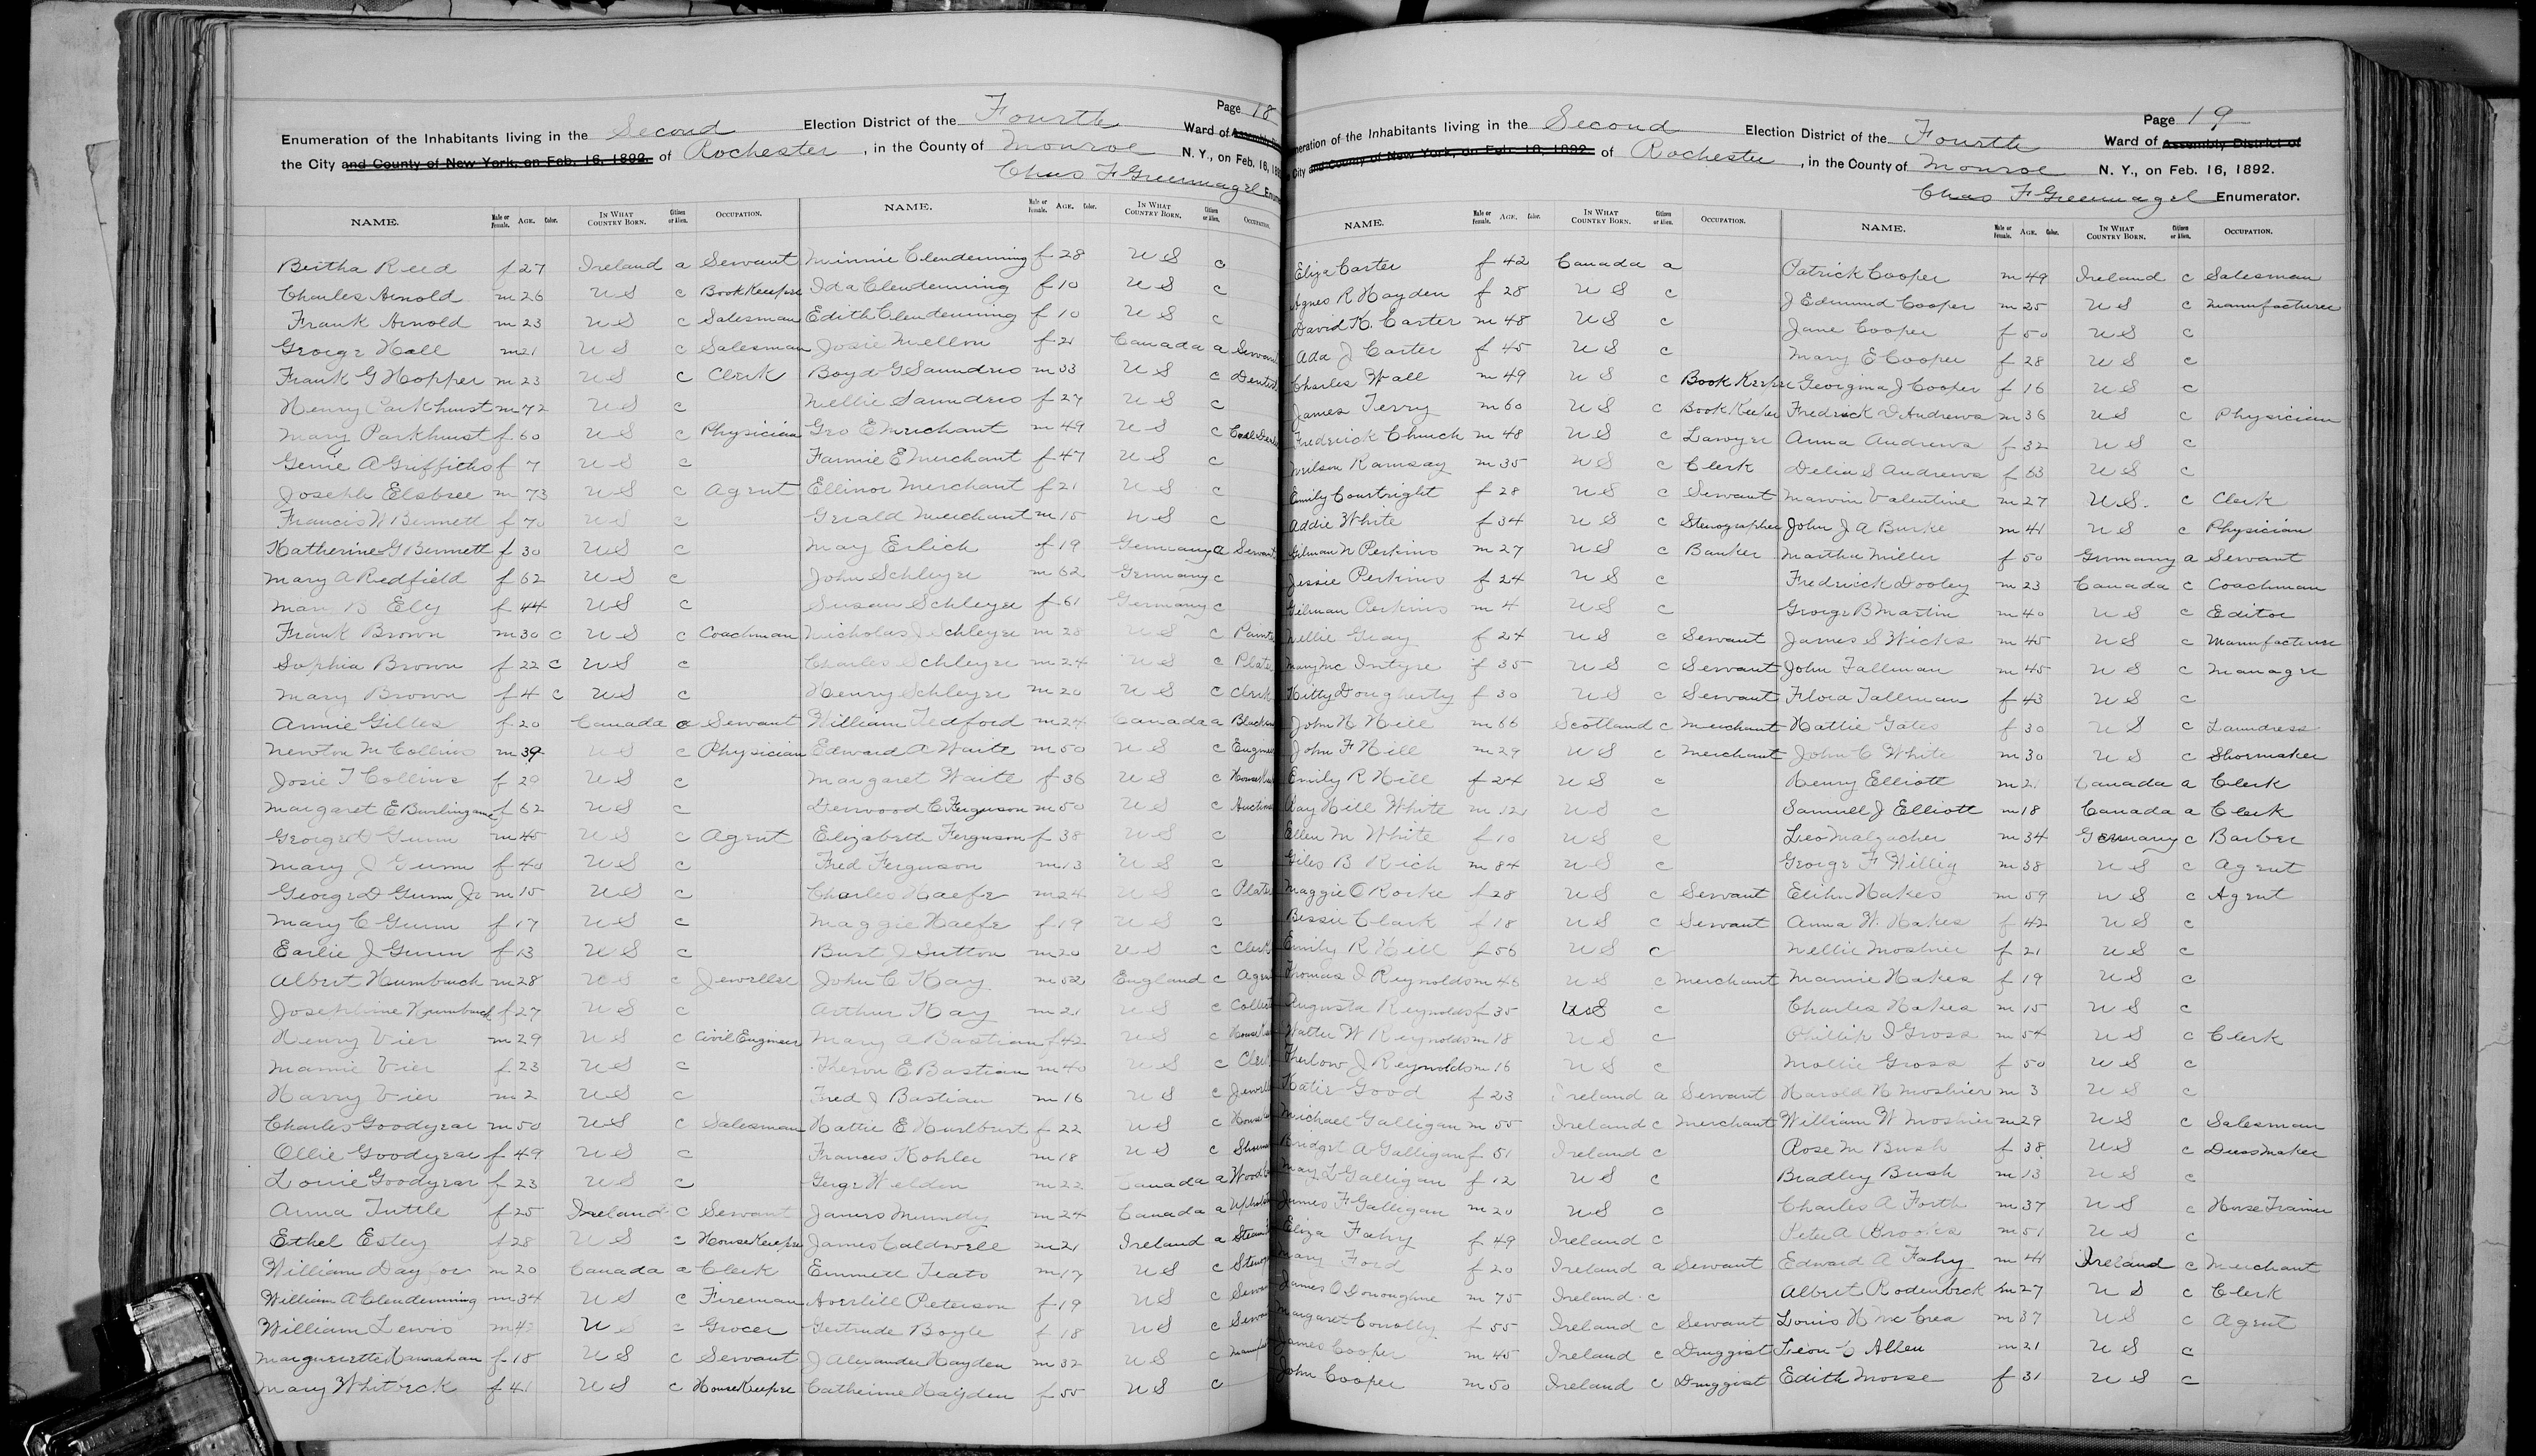 Page 18
Enumeration of the Inhabitants living in the Second Election District of the Fourth Ward of Assembly
the City and County of New York, on Feb. 16, 1892. of Rochester, in the County of Monroe N. Y., on Feb. 16, 1892
Chas F Greenmagel Enum
NAME. Male or Female. AGE. Color. IN WHAT COUNTRY BORN. Citizen or Alien. OCCUPATION.
Bertha Reed f 27 Ireland a Servant
Charles Arnold m 26 U S c BookKeeper
Frank Arnold m 23 U S c Salesman
George Hall m 21 U S c Salesman
Frank G Hopper m 23 U S c Clerk
Henry Parkhurst m 72 U S c
Mary Parkhurst f 60 U S c Physician
Genie A Griffiths f 7 U S c
Joseph Elsbree m 73 U S c Agent
Francis W Bennett f 70 U S c
Katherine G Bennett f 30 U S c
Mary A Redfield f 62 U S c
Mary B Ely f 44 U S c
Frank Brown m 30 c U S c Coachman
Sophia Brown f 22 c U S c
Mary Brown f 4 c U S c
Annie Gilles f 20 Canada a Servant
Newton M Collins m 39 U S c Physician
Josie T Collins f 29 U S c
Margaret E Burlingame f 62 U S c
George D Gunn m 45 U S c Agent
Mary J Gunn f 40 U S c
George D Gunn Jr m 15 U S c
Mary C Gunn f 17 U S c
Earlie J Gunn f 13 U S c
Albert Humbuch m 28 U S c Jeweller
Josephine Humbuch f 27 U S c
Henry Vier m 29 U S c Civil Engineer
Mamie Vier f 23 U S c
Harry Vier m 2 U S c
Charles Goodyear m 50 U S c Salesman
Ollie Goodyear f 49 U S c
Louie Goodyear f 23 U S c
Anna Tuttle f 25 Ireland c Servant
Ethel Estey f 28 U S c HouseKeeper
William Day m 20 Canada a Clerk
William A Clendenning m 34 U S c Fireman
William Lewis m U S c Grocer
Marguerette Hanrahan f 18 U S c Servant
Mary Whitbeck f 41 U S c HouseKeeper
NAME. Male or Female. AGE. Color. IN WHAT COUNTRY BORN. Citizen or Alien. OCCUPATION.
Minnie Clendenning f 28 U S c
Ida Clendenning f 10 U S c
Edith Clendenning f 10 U S c
Josie Mellon f 21 Canada a Servant
Boyd G Saundres m 33 U S c Dentist
Nellie Saundres f 27 U S c
Geo E Merchant m 49 U S c Coal Deale
Fannie E Merchant f 47 U S c
Ellinor Merchant f 21 U S c
Gerald Merchant m 15 U S c
May Erlich f 19 Germany a Servant
John Schleyer m 62 Germany c
Susan Schleyer f 61 Germany c
Nicholas J Schleyer m 28 U S c Painte
Charles Schleyer m 24 U S c Plater
Henry Schleyer m 20 U S c Clerk
William Tedford m 24 Canada a Blacksm
Edward A Waite m 50 U S c Engineer
Margaret Waite f 36 U S c HouseKee
Derwood C Ferguson m 50 U S c Auction
Elizabeth Ferguson f 38 U S c
Fred Ferguson m 13 U S c
Charles Haefe m 24 U S c Plater
Maggie Haefe f 19 U S c
Burt J Sutton m 20 U S c Clerk
John C Kay m 52 England c Agent
Arthur Kay m 21 U S c Collect
Mary A Bastian f 42 U S c House
Theron E Bastian m 40 U S c Clerk
Fred J Bastian m 16 U S c Jewell
Hattie E Hurlburt f 22 U S c House
Frances Kohler m 18 U S c Shoem
Geoge Welden m 22 Canada a Wood
James Mundy m 24 Canada a Uphols
James Caldwell m 21 Ireland a Steam
Emmett Teats m 17 U S c Stenog
Averlill Peterson f 19 U S c Servan
Gertrude Boyle f 18 U S c Servan
J Alexander Hayden m 32 U S c Manufac
Catherine Hayden f 55 U S c
Page 19
meration of the Inhabitants living in the Second Election District of the Fourth Ward of Assembly District of
City and County of New York, on Feb. 16, 1892. of Rochester, in the County of Monroe N. Y., on Feb. 16, 1892.
Chas F Greenmagel Enumerator.
NAME. Male or Female. AGE. Color. IN WHAT COUNTRY BORN. Citizen or Alien. OCCUPATION.
Eliza Carter f 42 Canada a
Agnes R Hayden f 28 U S c
David K. Carter m 48 U S c
Ada J Carter f 45 U S c
Charles Wall m 49 U S c Book Keeper
James Terry m 60 U S c Book Keeper
Frederick Church m 48 U S c Lawyer
Wilson Ramsay m 35 U S c Clerk
Emily Courtright f 28 U S c Servant
Addie White f 34 U S c Stenographer
Gilman N Perkins m 27 U S c Banker
Jessie Perkins f 24 U S c
Gilman Perkins m 4 U S c
Nellie Gray f 24 U S c Servant
Mary Mc Intyre f 35 U S c Servant
Kitty Dougherty f 30 U S c Servant
John H Hill m 66 Scotland c Merchant
John F Hill m 29 U S c Merchant
Emily R Hill f 24 U S c
Ray Hill White m 12 U S c
Ellen M White f 10 U S c
Giles B Rich m 84 U S c
Maggie O Rorke f 28 U S c Servant
Bessie Clark f 18 U S c Servant
Emily R Hill f 56 U S c
Thomas J Reynolds m 46 U S c Merchant
Augusta Reynolds f 35 U S c
Walter W Reynolds m 18 U S c
Thurlow J Reynolds m 16 U S c
Katie Good f 23 Ireland a Servant
Michael Galligan m 55 Ireland c Merchant
Bridget A Galligan f 51 Ireland c
May L Galligan f 12 U S c
James F Galligan m 20 U S c
Eliza Fahy f 49 Ireland c
Mary Ford f 20 Ireland a Servant
James O Donoughue m 75 Ireland c
Margaret Conolly f 55 Ireland c Servant
James Cooper m 45 Ireland c Druggist
John Cooper m 50 Ireland c Druggist
NAME. Male or Female. AGE. Color. IN WHAT COUNTRY BORN. Citizen or Alien. OCCUPATION.
Patrick Cooper m 49 Ireland c Salesman
J Edmund Cooper m 25 U S c Manufacturer
Jane Cooper f 50 U S c
Mary E Cooper f 28 U S c
Georgina J Cooper f 16 U S c
Fredrick D Andrews m 36 U S c Physician
Anna Andrews f 32 U S c
Delia S Andrews f 63 U S c
Marvin Valentine m 27 U S. c Clerk
John J A Burke m 41 U S c Physician
Martha Miller f 50 Germany a Servant
Fredrick Dooley m 23 Canada c Coachman
George B Martin m 40 U S c Editor
James S Wicks m 45 U S c Manufacturer
John Tallman m 45 U S c Manager
Flora Tallman f 43 U S c
Hattie Gates f 30 U S c Laundress
John C White m 30 U S c Shoemaker
Henry Elliott m 2 Canada a Clerk
Samuell J Elliott m 18 Canada a Clerk
Leo Malzacher m 34 Germany c Barber
George F Willig m 38 U S c Agent
Elihu Hakes m 59 U S c Agent
Anna W. Hakes f 42 U S c
Nellie Moshier f 21 U S c
Mamie Hakes f 19 U S c
Charles Hakes m 15 U S c
Phillip J Gross m 54 U S c Clerk
Mollie Gross f 50 U S c
Harold H Moshier m 3 U S c
William W Moshier m 29 U S c Salesman
Rose M Bush f 38 U S c DressMaker
Bradley Bush m 13 U S c
Charles A Forth m 37 U S c Horse Trainer
Peter A Brooks m 51 U S c
Edward A Fahy m 44 Ireland c Merchant
Albert Rodenbeck m 27 U S c Clerk
Louis H Mc Crea m 37 U S c Agent
Leon C Allen m 21 U S c
Edith Morse f 31 U S c